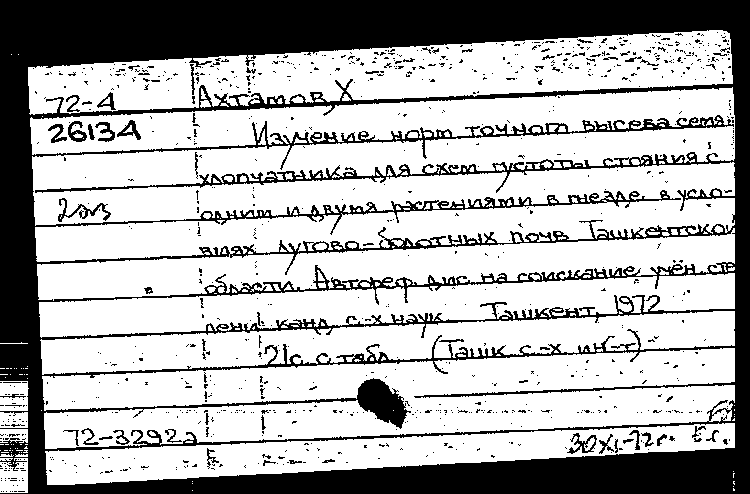 72-4 Ахтамов, Х
26134 Изучение норм точного высева семя
хлопчатника для схем густоты стояния с
2 экз одним и двумя растениями в гнезде в усло-
виях лугово-болотных почв Ташкентской
области. Автореф. дис. на соискание учён. сте
пени канд. с.-х наук. Ташкент, 1972
21с. с табл. (Ташк. с.-х. ин-т)
72-32922
30 XI-72г.